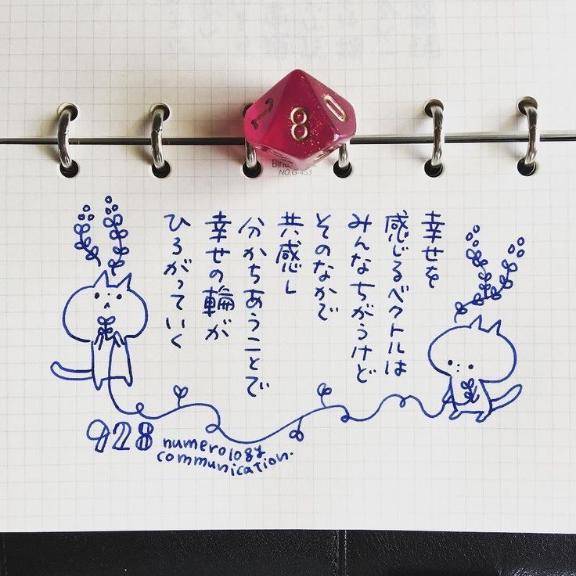 8
0
幸せを
感じるベクトルは
みんなちがうけど
そのなかで
共感し
分かちあうことで
幸せの輪が
ひろがっていく
928
numerology
communication.